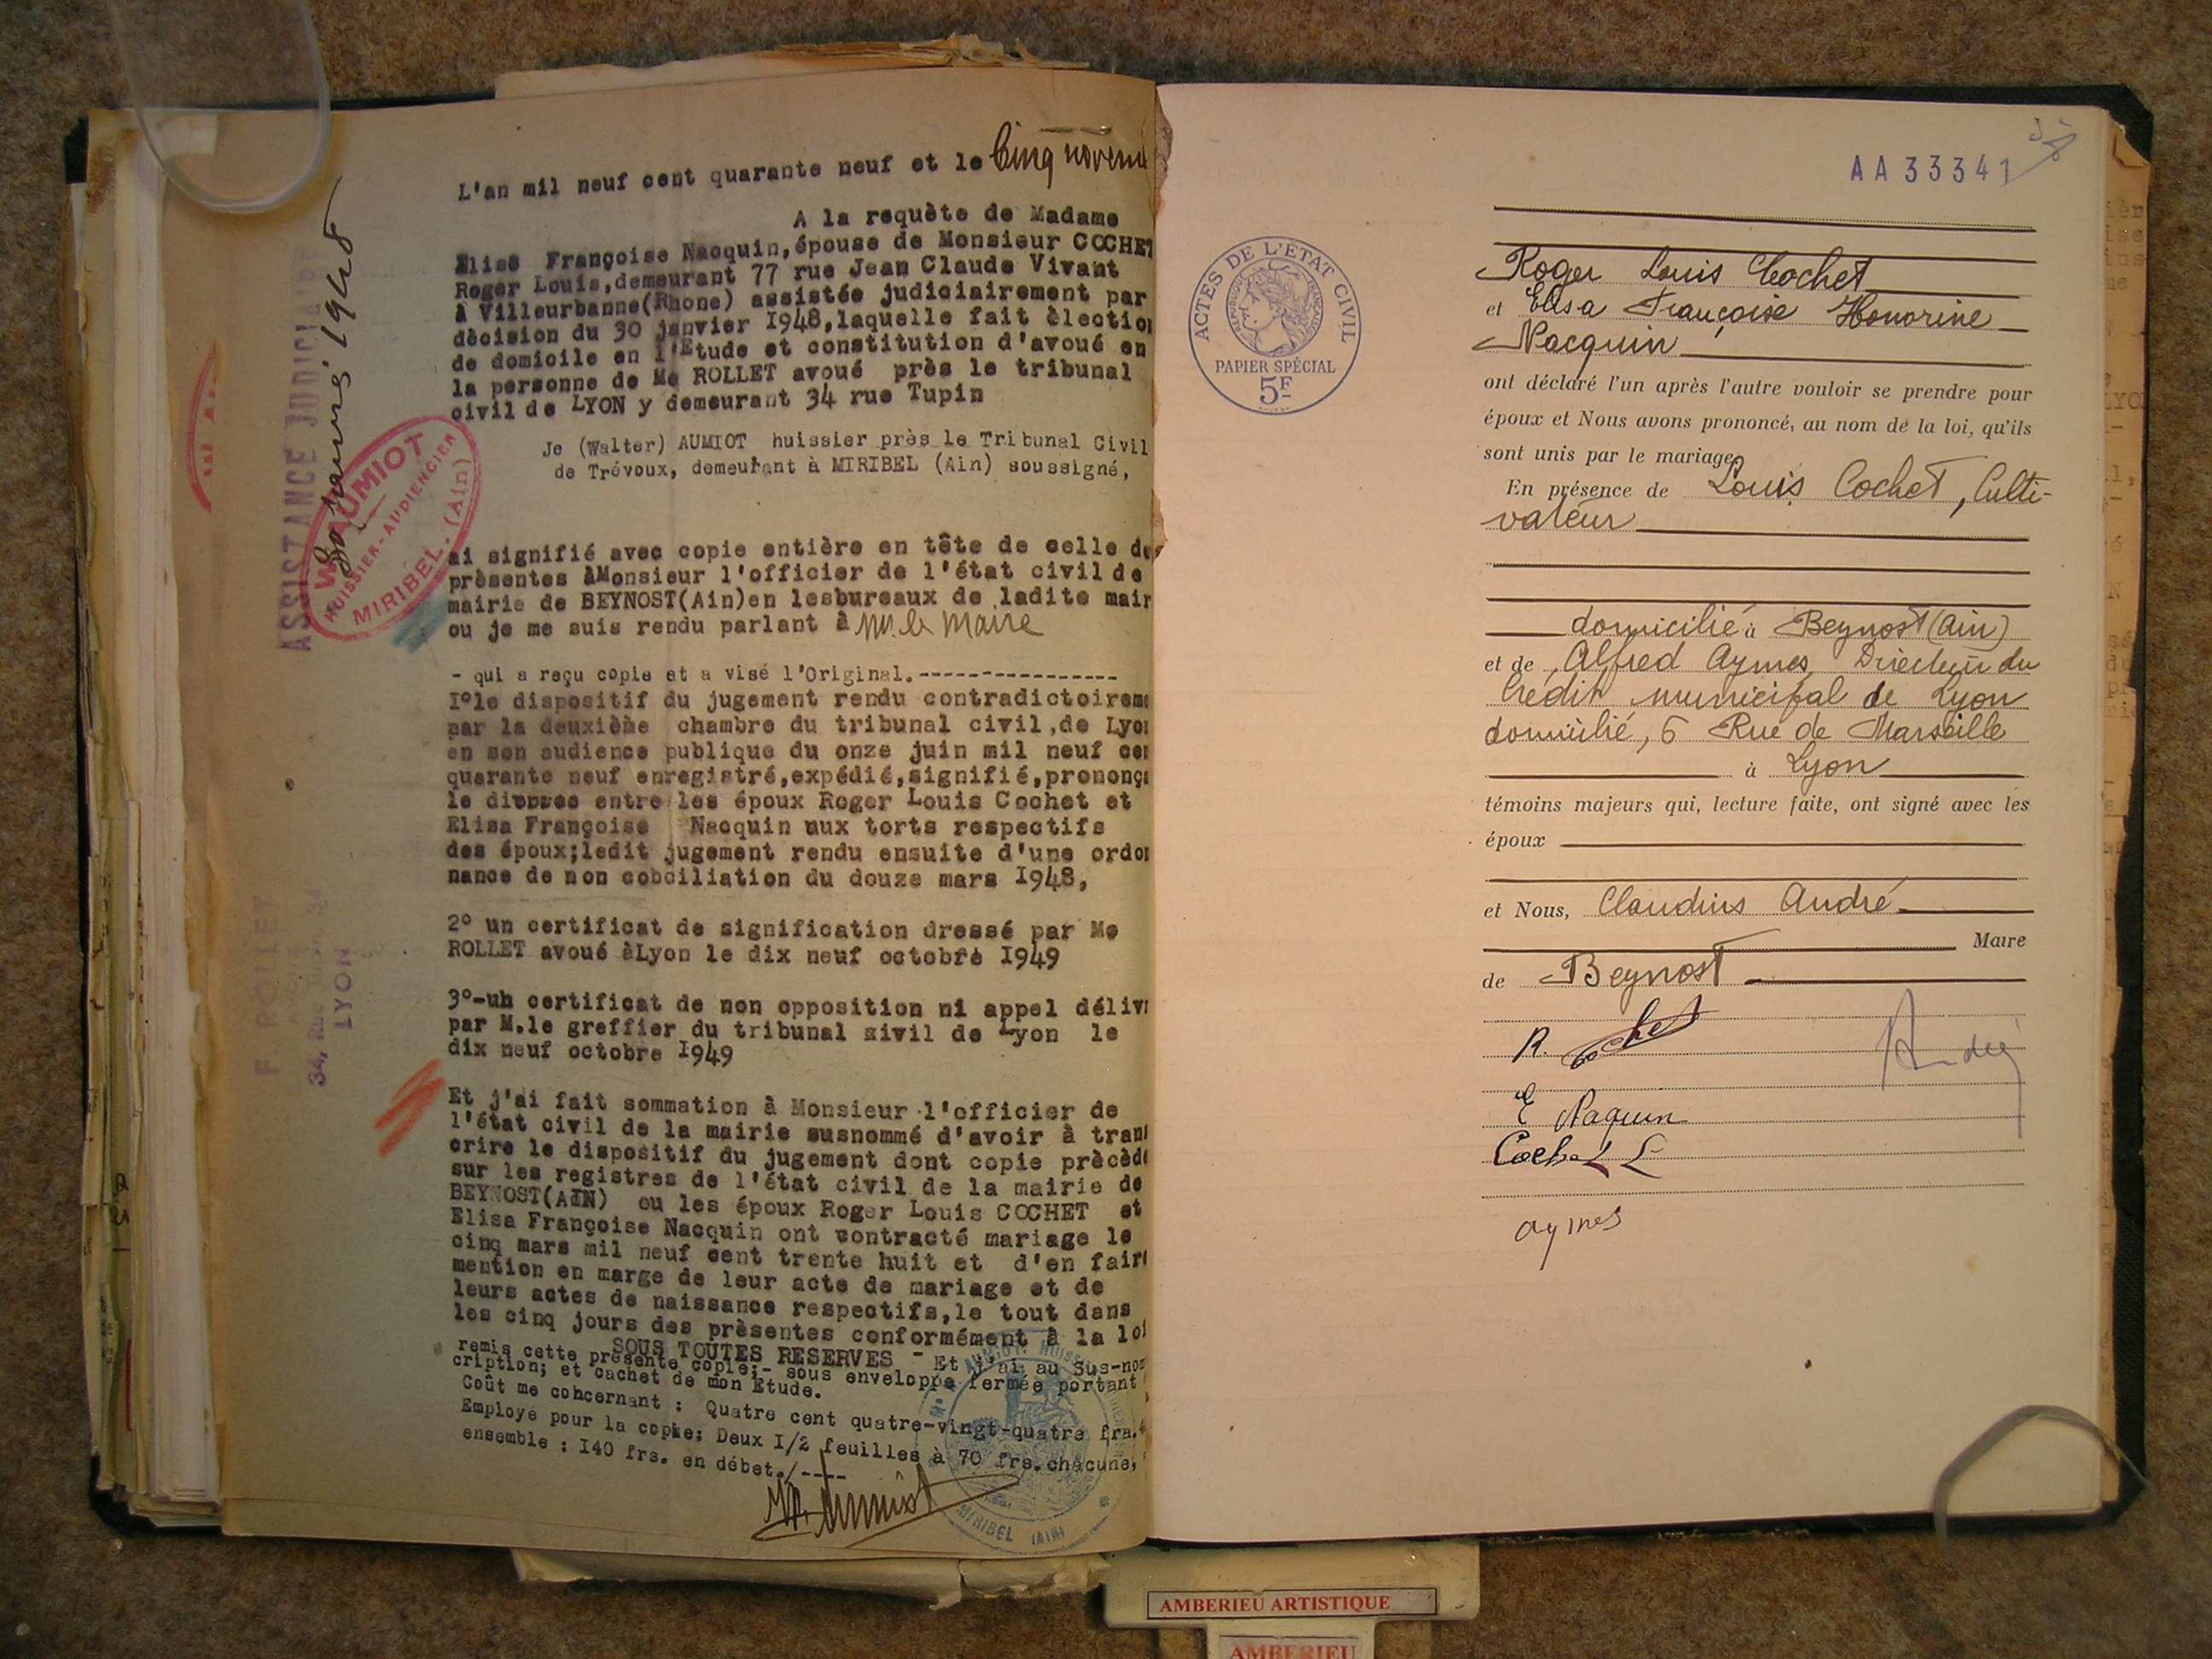 L'an mil neuf cent quarante neuf et le Cinq novem
A la requète de Madame
Elise Françoise Nacquin,épouse de Monsieur COCHET
Roger Louis,demeurant 77 rue Jean Claude Vivant
à Villeurbanne(Rhone) assistée judiciairement par
dècision du 30 janvier 1948,laquelle fait èlection
de domicile en l'Etude et constitution d'avoué en
la personne de Me ROLLET avoué près le tribunal
civil de LYON y demeurant 34 rue Tupin
Je (Walter) AUMIOT huissier près le Tribunal Civil
de Trévoux, demeurant à MIRIBEL (Ain) soussigné,
ai signifié avec copie entière en tête de celle de
prèsentes àMonsieur l'officier de l'état civil de
mairie de BEYNOST(Ain)en lesbureaux de ladite mair
ou je me suis rendu parlant à M. le Maire
- qui a reçu copie et a visé l'Original.----------------
I°le dispositif du jugement rendu contradictoireme
par la deuxième chambre du tribunal civil,de Lyon
en son audience publique du onze juin mil neuf cen
quarante neuf enregistré,expédié,signifié,prononça
le divorce entre les époux Roger Louis Cochet et
Elisa Françoise Nacquin aux torts respectifs
des époux;ledit jugement rendu ensuite d'une ordon
nance de non cobciliation du douze mars 1948,
2° un certificat de signification dressé par Me
ROLLET avoué àLyon le dix neuf octobre 1949
3°-uh certificat de non opposition ni appel déliv
par M.le greffier du tribunal civil de Lyon le
dix neuf octobre 1949
Et j'ai fait sommation à Monsieur l'officier de
l'état civil de la mairie susnommé d'avoir à tran
crire le dispositif du jugement dont copie prècède
sur les registres de l'état civil de la mairie de
BEYNOST(AIN) ou les époux Roger Louis COCHET et
Elisa Françoise Nacquin ont contracté mariage le
cinq mars mil neuf cent trente huit et d'en faire
mention en marge de leur acte de mariage et de
leurs actes de naissance respectifs,le tout dans
les cinq jours des prèsentes conformément à la loi
SOUS TOUTES RESERVES - Et j'ai au Sus-nom
remis cette présente copie;- sous enveloppe fermée portant
cription; et cachet de mon Etude.
Coût me cohcernant : Quatre cent quatre-vingt-quatre fra.
Employé pour la copie: Deux I/2 feuilles à 70 frs.chacune,
ensemble : I40 frs. en débet./----
W. Aumiot
MIRIBEL (AIN)
ASSISTANCE JUDICIAIRE
30 janvier 1948
W. AUMIOT
HUISSIER-AUDIENCIER
MIRIBEL. (Ain)
F. ROLLET
LYON
AA 33341
ACTES DE L'ÉTAT CIVIL
RÉPUBLIQUE FRANÇAISE
PAPIER SPÉCIAL
5F
Roger Louis Cochet
et Elisa Françoise Honorine
Nacquin
ont déclaré l'un après l'autre vouloir se prendre pour
époux et Nous avons prononcé, au nom de la loi, qu'ils
sont unis par le mariage
En présence de Louis Cochet, Culti-
vateur
domicilié à Beynost (Ain)
et de Alfred Aymes, Directeur du
Crédit municipal de Lyon
domicilié, 6 Rue de Marseille
à Lyon
témoins majeurs qui, lecture faite, ont signé avec les
époux
et Nous, Claudius André
Maire
de Beynost
R. Cochet
André
E Naquin
Cochet L
aymes
AMBERIEU ARTISTIQUE
AMBERIEU